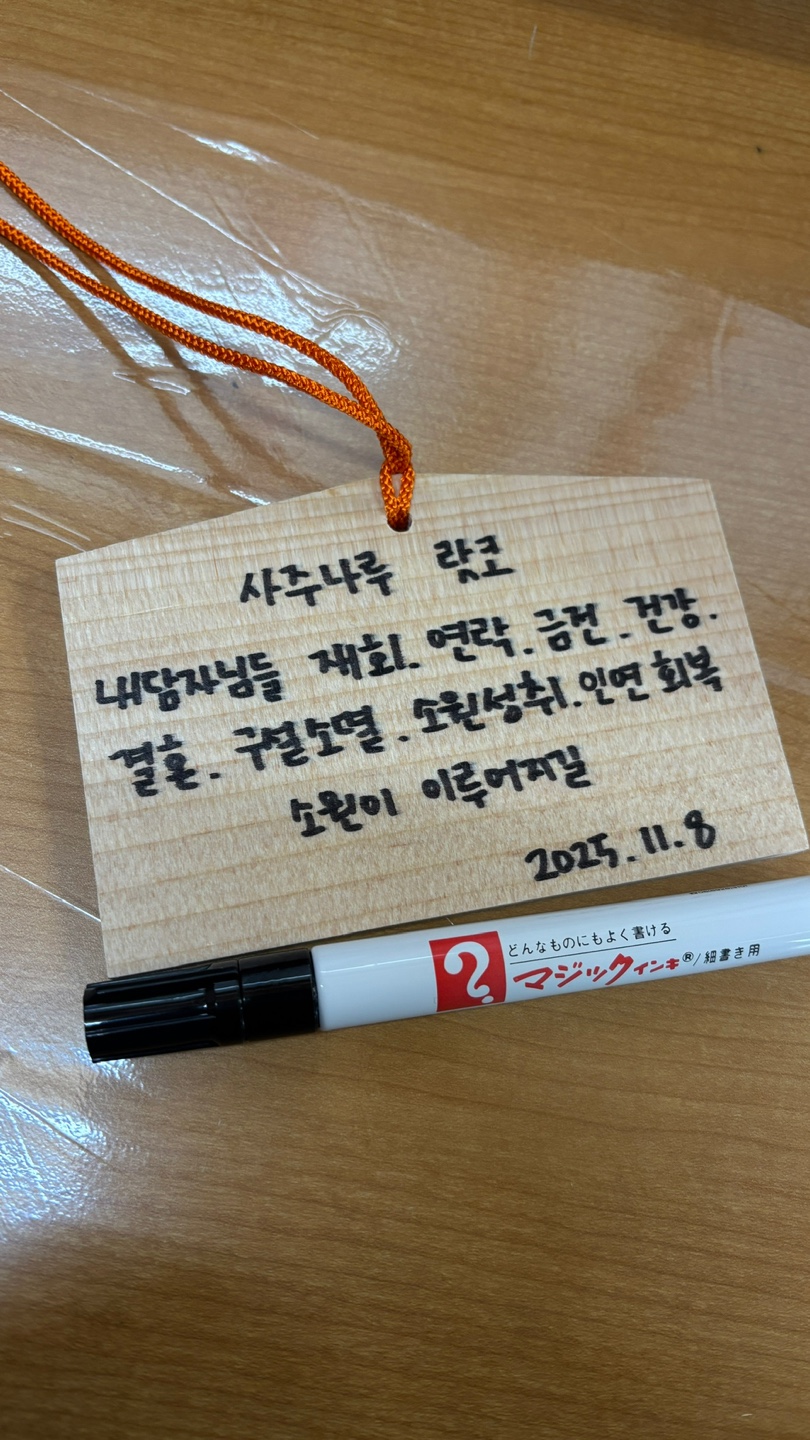 사주나루 랏코
내담자님들 재회. 연락. 금전. 건강.
결혼. 구설소멸. 소원성취. 인연 회복
소원이 이루어지길
2025. 11. 8
?
どんなものにもよく書ける
マジックインキ®/細書き用